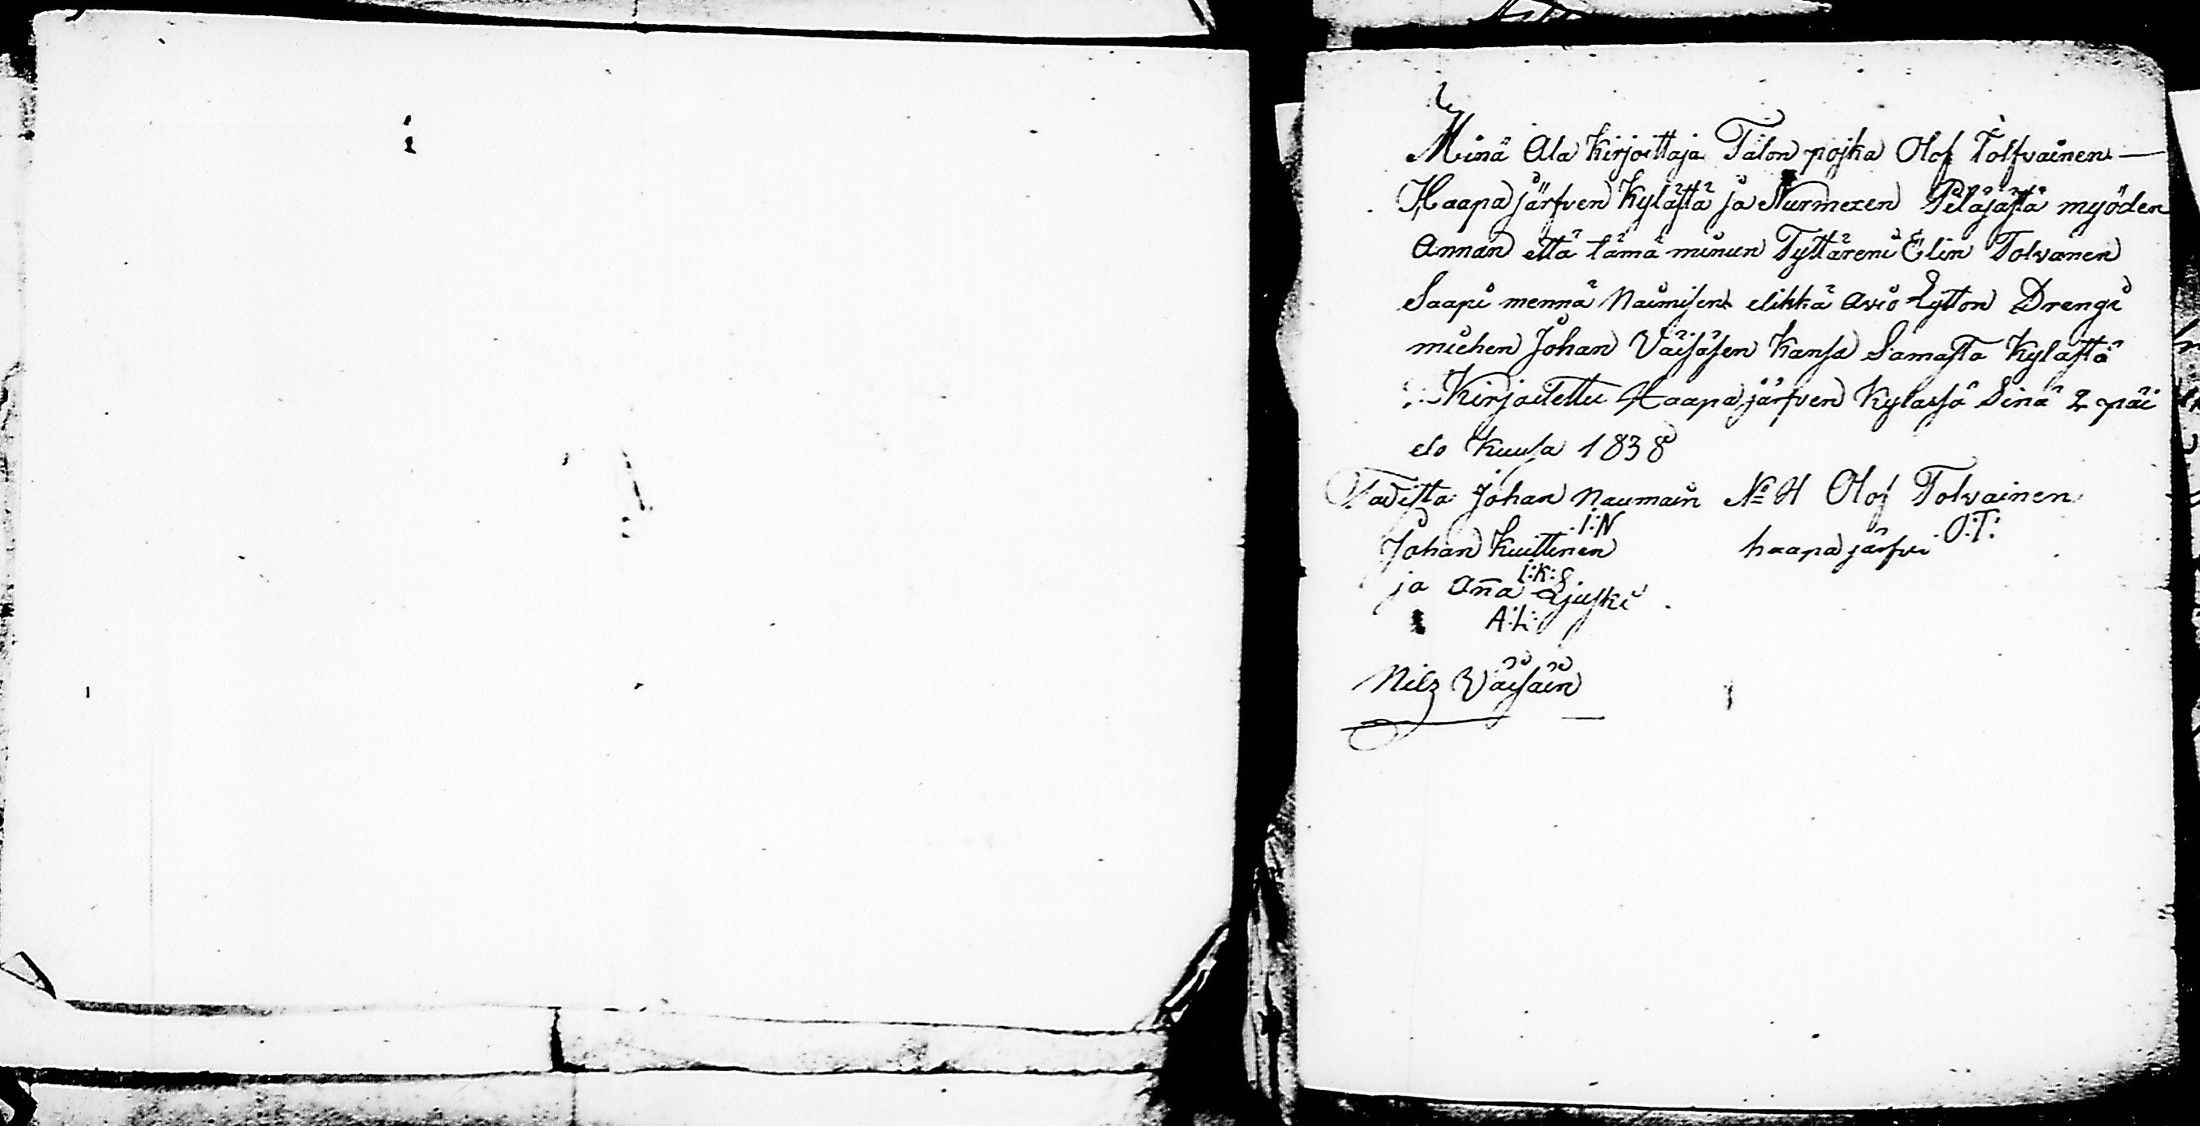 Minä Ala Kirjoittaja Talon pojka Olof Tolfvainen —
Haapajärfven Kylästä ja Nurmexen Pitäjästä myöden
Annan että tämä minun Tyttäreni Elin Tolvanen
Saapi mennä Naimisen elikkä avio Lytton Drengi
miehen Johan Väisäsen Kansa Samasta Kylästä
Kirjoitettu Haapajärfven Kylässä Sinä 2 päi
elo Kuusa 1838
Todista Johan Naumain No 4 Olof Tolvainen
I:N O:T:
Johan Kuittinen haapajärfvi
I:K:
ja Aña Ljuski
A:L:
Nils Väisäin